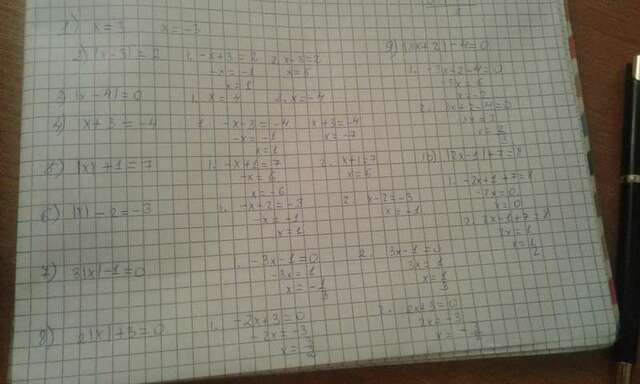 1) x = 3 x = -3
2) |x-3| = 2 1. -x+3 = 2 2. x+3 = 2
-x = -1 x = 5
x = 1
3) |x-4| = 0 1. x = 4 2. x = -4
4) x+3 = -4 1. -x+3 = -4 x+3 = -4
x = -7
x = 1
5) |x|+1 = 7 1. -x+1 = 7 2. x+1 = 7
-x = 6 x = 6
x = -6
6) |x|-2 = -3 1. -x+2 = -3 2. x-2 = -3
-x = +1 x = +1
x = 1
7) 3|x|-1 = 0 1. -3x-1 = 0 2. 3x-1 = 0
-3x = 1 3x = 1
x = -1/3 x = 1/3
8) 2|x|+3 = 0 1. -2x+3 = 0 2. 2x+3 = 0
-2x = -3 2x = -3
x = 3/2
9)
10) |2x-1|+7 = 8
1. -2x+1+7 = 8
-2x = 0
x = 0
2. 2x+1+7 = 8
2x = 1
x = 1/2